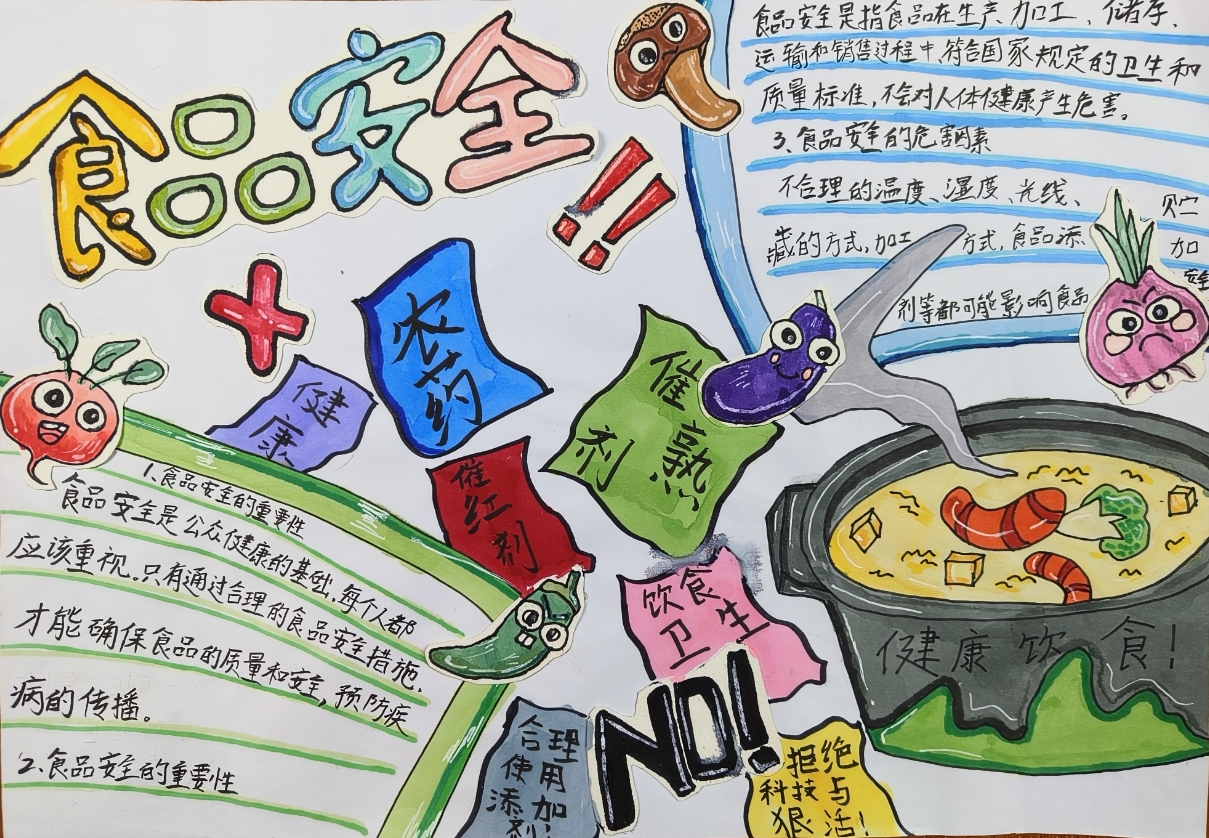 食品安全!!
食品安全是指食品在生产、加工、储存、
运输和销售过程中符合国家规定的卫生和
质量标准,不会对人体健康产生危害。
3、食品安全的危害因素
不合理的温度、湿度、光线、贮
藏的方式,加工方式,食品添加
剂等都可能影响食品安全
农药
健康
催熟剂
催红剂
1.食品安全的重要性
食品安全是公众健康的基础,每个人都
应该重视.只有通过合理的食品安全措施.
才能确保食品的质量和安全,预防疾
病的传播。
2、食品安全的重要性
饮食
卫生
NO!
健康饮食!
合理
使用
添加
剂!
拒绝
科技与
狠活!